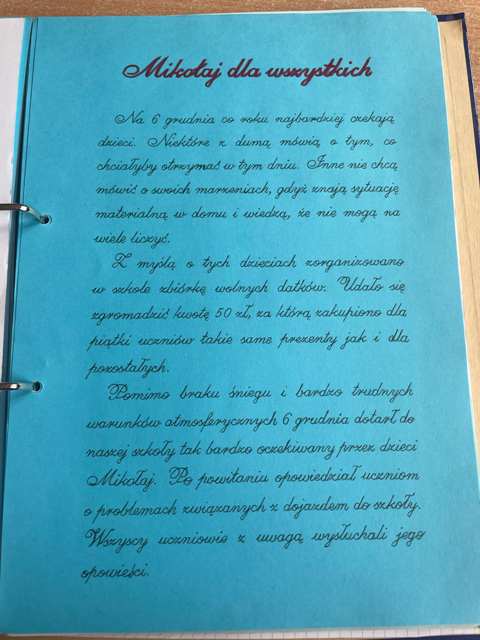 Mikołaj dla wszystkich
Na 6 grudnia co roku najbardziej czekają
dzieci. Niektóre z dumą mówią o tym, co
chciałyby otrzymać w tym dniu. Inne nie chcą
mówić o swoich marzeniach, gdyż znają sytuację
materialną w domu i wiedzą, że nie mogą na
wiele liczyć.
Z myślą o tych dzieciach zorganizowano
w szkole zbiórkę wolnych datków. Udało się
zgromadzić kwotę 50 zł, za którą zakupiono dla
piątki uczniów takie same prezenty jak i dla
pozostałych.
Pomimo braku śniegu i bardzo trudnych
warunków atmosferycznych 6 grudnia dotarł do
naszej szkoły tak bardzo oczekiwany przez dzieci
Mikołaj. Po powitaniu opowiedział uczniom
o problemach związanych z dojazdem do szkoły.
Wszyscy uczniowie z uwagą wysłuchali jego
opowieści.